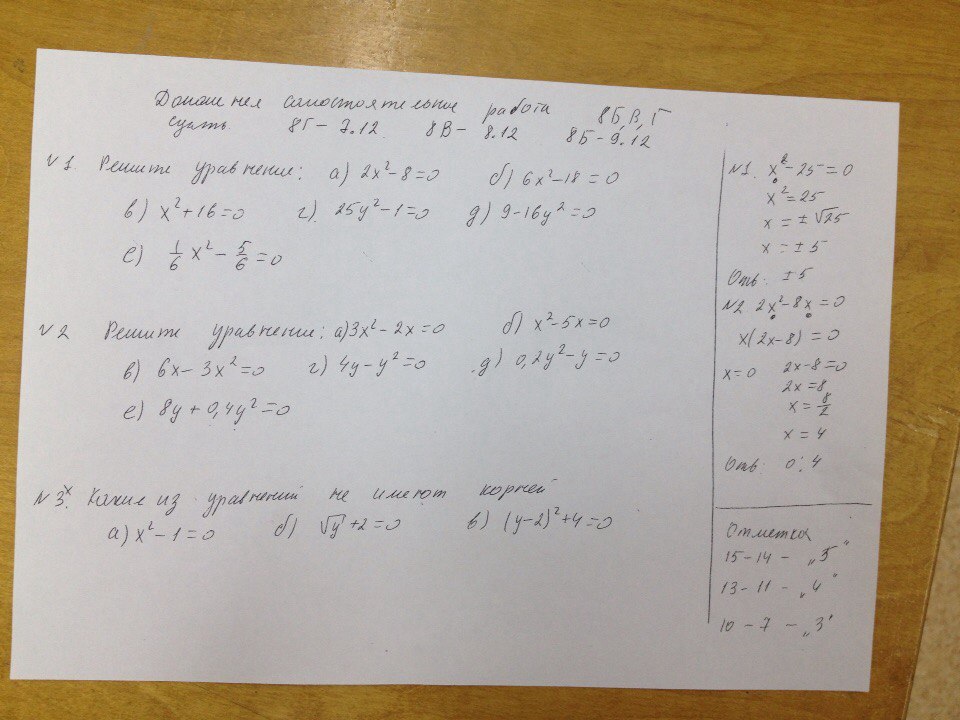 Домашняя самостоятельная работа 8Б, В, Г
сдать. 8Г – 7.12 8В – 8.12 8Б – 9.12
№1. Решите уравнение: а) 2x² – 8 = 0 б) 6x² – 18 = 0
в) x² + 16 = 0 г) 25y² – 1 = 0 д) 9 – 16y² = 0
е) 1/6 x² – 5/6 = 0
№2 Решите уравнение: а) 3x² – 2x = 0 б) x² – 5x = 0
в) 6x – 3x² = 0 г) 4y – y² = 0 д) 0,2y² – y = 0
е) 8y + 0,4y² = 0
№3*. Какие из уравнений не имеют корней
а) x² – 1 = 0 б) √y + 2 = 0 в) (y – 2)² + 4 = 0
№1. x² – 25 = 0
x² = 25
x = ± √25
x = ± 5
Отв: ± 5
№2. 2x² – 8x = 0
x(2x – 8) = 0
x = 0 2x – 8 = 0
2x = 8
x = 8/2
x = 4
Отв: 0; 4
Отметка
15 – 14 – „5"
13 – 11 – „4"
10 – 7 – „3"